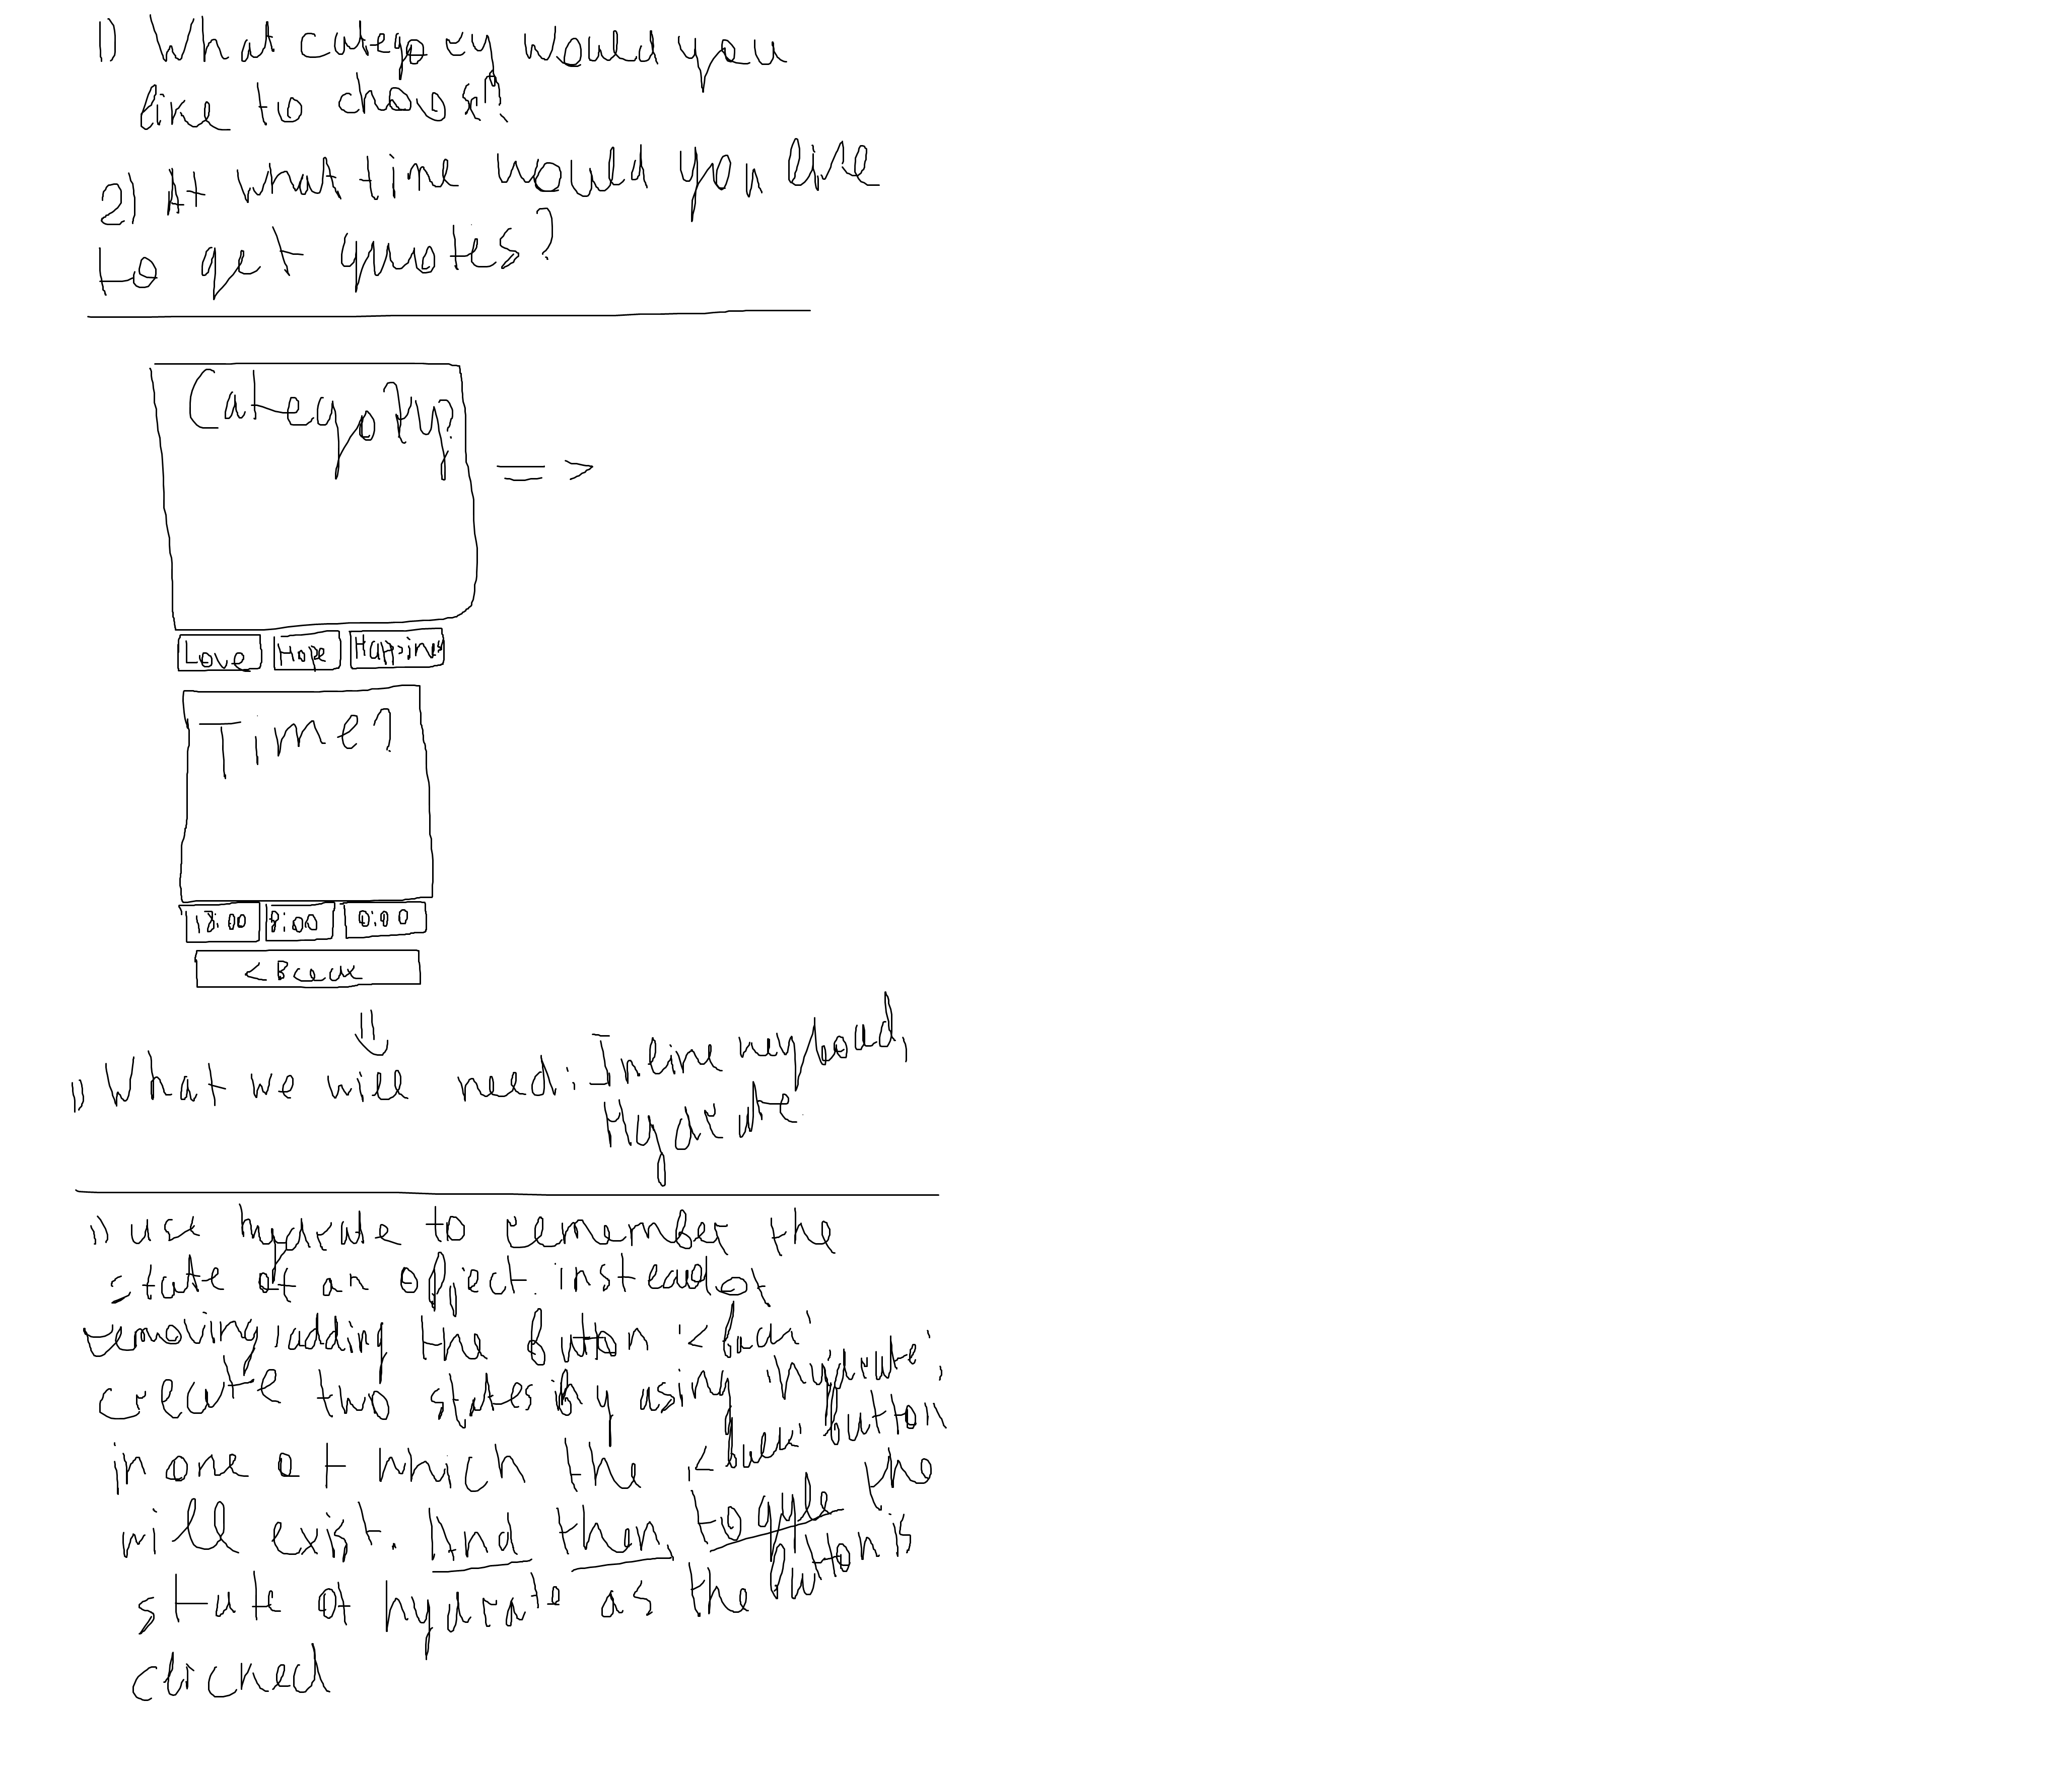 1) What category would you
like to choose?
2) At what time would you like
to get quotes?
Category?
=>
Love Hope Happines
Time?
18:00 8:00 0:00
< Back
1) What we will need: Inline keyboad,
Hydrate
1) use hydrate to remember the
state of an object. instead of
removing, adding the button '< back'
create two states by using 'hydrate',
in one of which the '< back' button
will exist. And then toggle the
state of hydrate as the button is
clicked